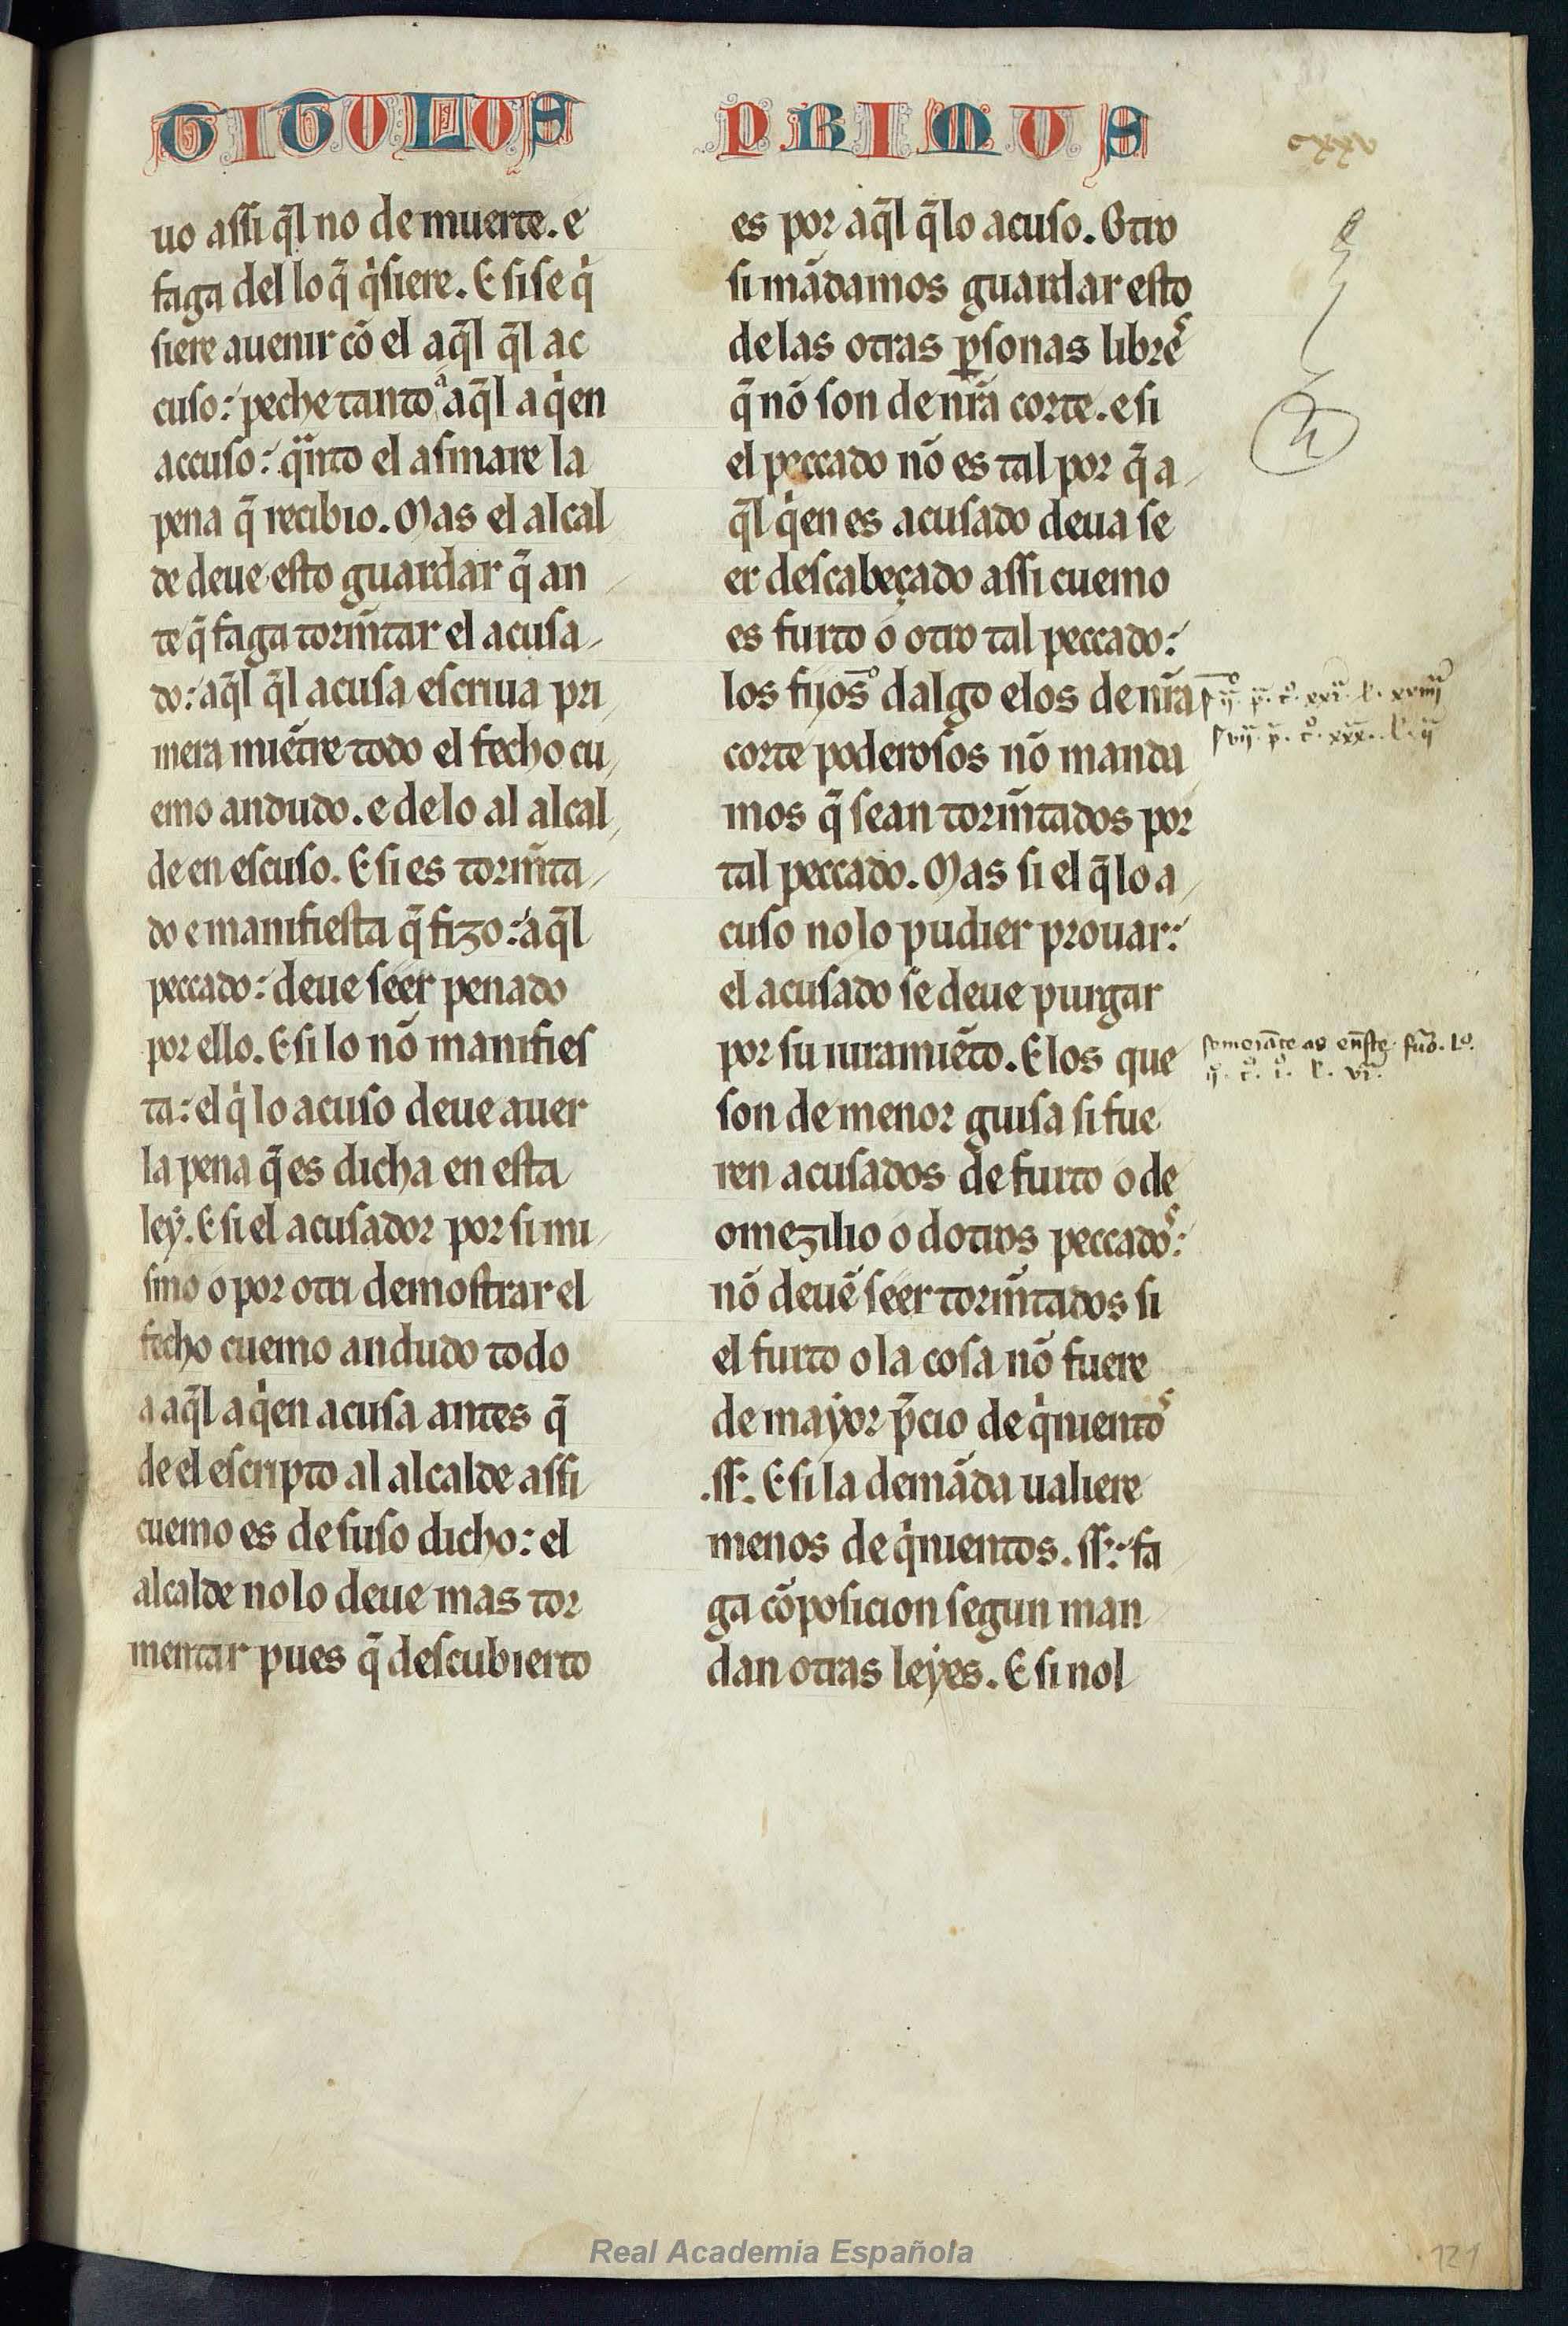 TITULUS PRIMUS
cxxv
uo assi q̃l no de muerte. e
faga del lo q̃ q̇siere. E si se q̇
siere auenir cõ el aq̃l q̃l ac
cuso: peche tanto a aq̃l a q̇en
accuso: q̈nto el asmare la
pena q̃ recibio. Mas el alcal
de deue esto guardar q̃ an
te q̃ faga torm̃tar el acusa
do: aq̃l q̃l acusa escriua pri
mera muẽtre todo el fecho cu
emo andudo. e delo al alcal
de en escuso. E si es torm̃ta
do e manifiesta q̃ fizo: aq̃l
peccado: deue seer penado
por ello. E si lo nõ manifies
ta: el q̇ lo acuso deue auer
la pena q̃ es dicha en esta
ley. E si el acusador por si mi
smo o por otri demostrar el
fecho cuemo andudo todo
a aq̃l a q̇en acusa antes q̃
de el escripto al alcalde assi
cuemo es de suso dicho: el
alcalde no lo deue mas tor
mentar pues q̃ descubierto
es por aq̃l q̃ lo acuso. Otro
si mãdamos guardar esto
de las otras ꝑsonas libres
q̃ nõ son de nr̃a corte. e si
el peccado nõ es tal por q̃ a
q̃l q̇en es acusado deua se
er descabeçado assi cuemo
es furto o otro tal peccado:
los fijos dalgo e los de nr̃a
corte poderosos nõ manda
mos q̃ sean torm̃tados por
tal peccado. Mas si el q̃ lo a
cuso no lo pudier prouar:
el acusado se deue purgar
por su iuramiẽto. E los que
son de menor guisa si fue
ren acusados de furto o de
omezilio o dotros peccados:
nõ deuẽ seer torm̃tados si
el furto o la cosa nõ fuere
de mayor p̃cio de q̇nientos
.ss. E si la demãda ualiere
menos de q̇nientos. ss: fa
ga cõposicion segun man
dan otras leyes. E si nol
121
Real Academia Española